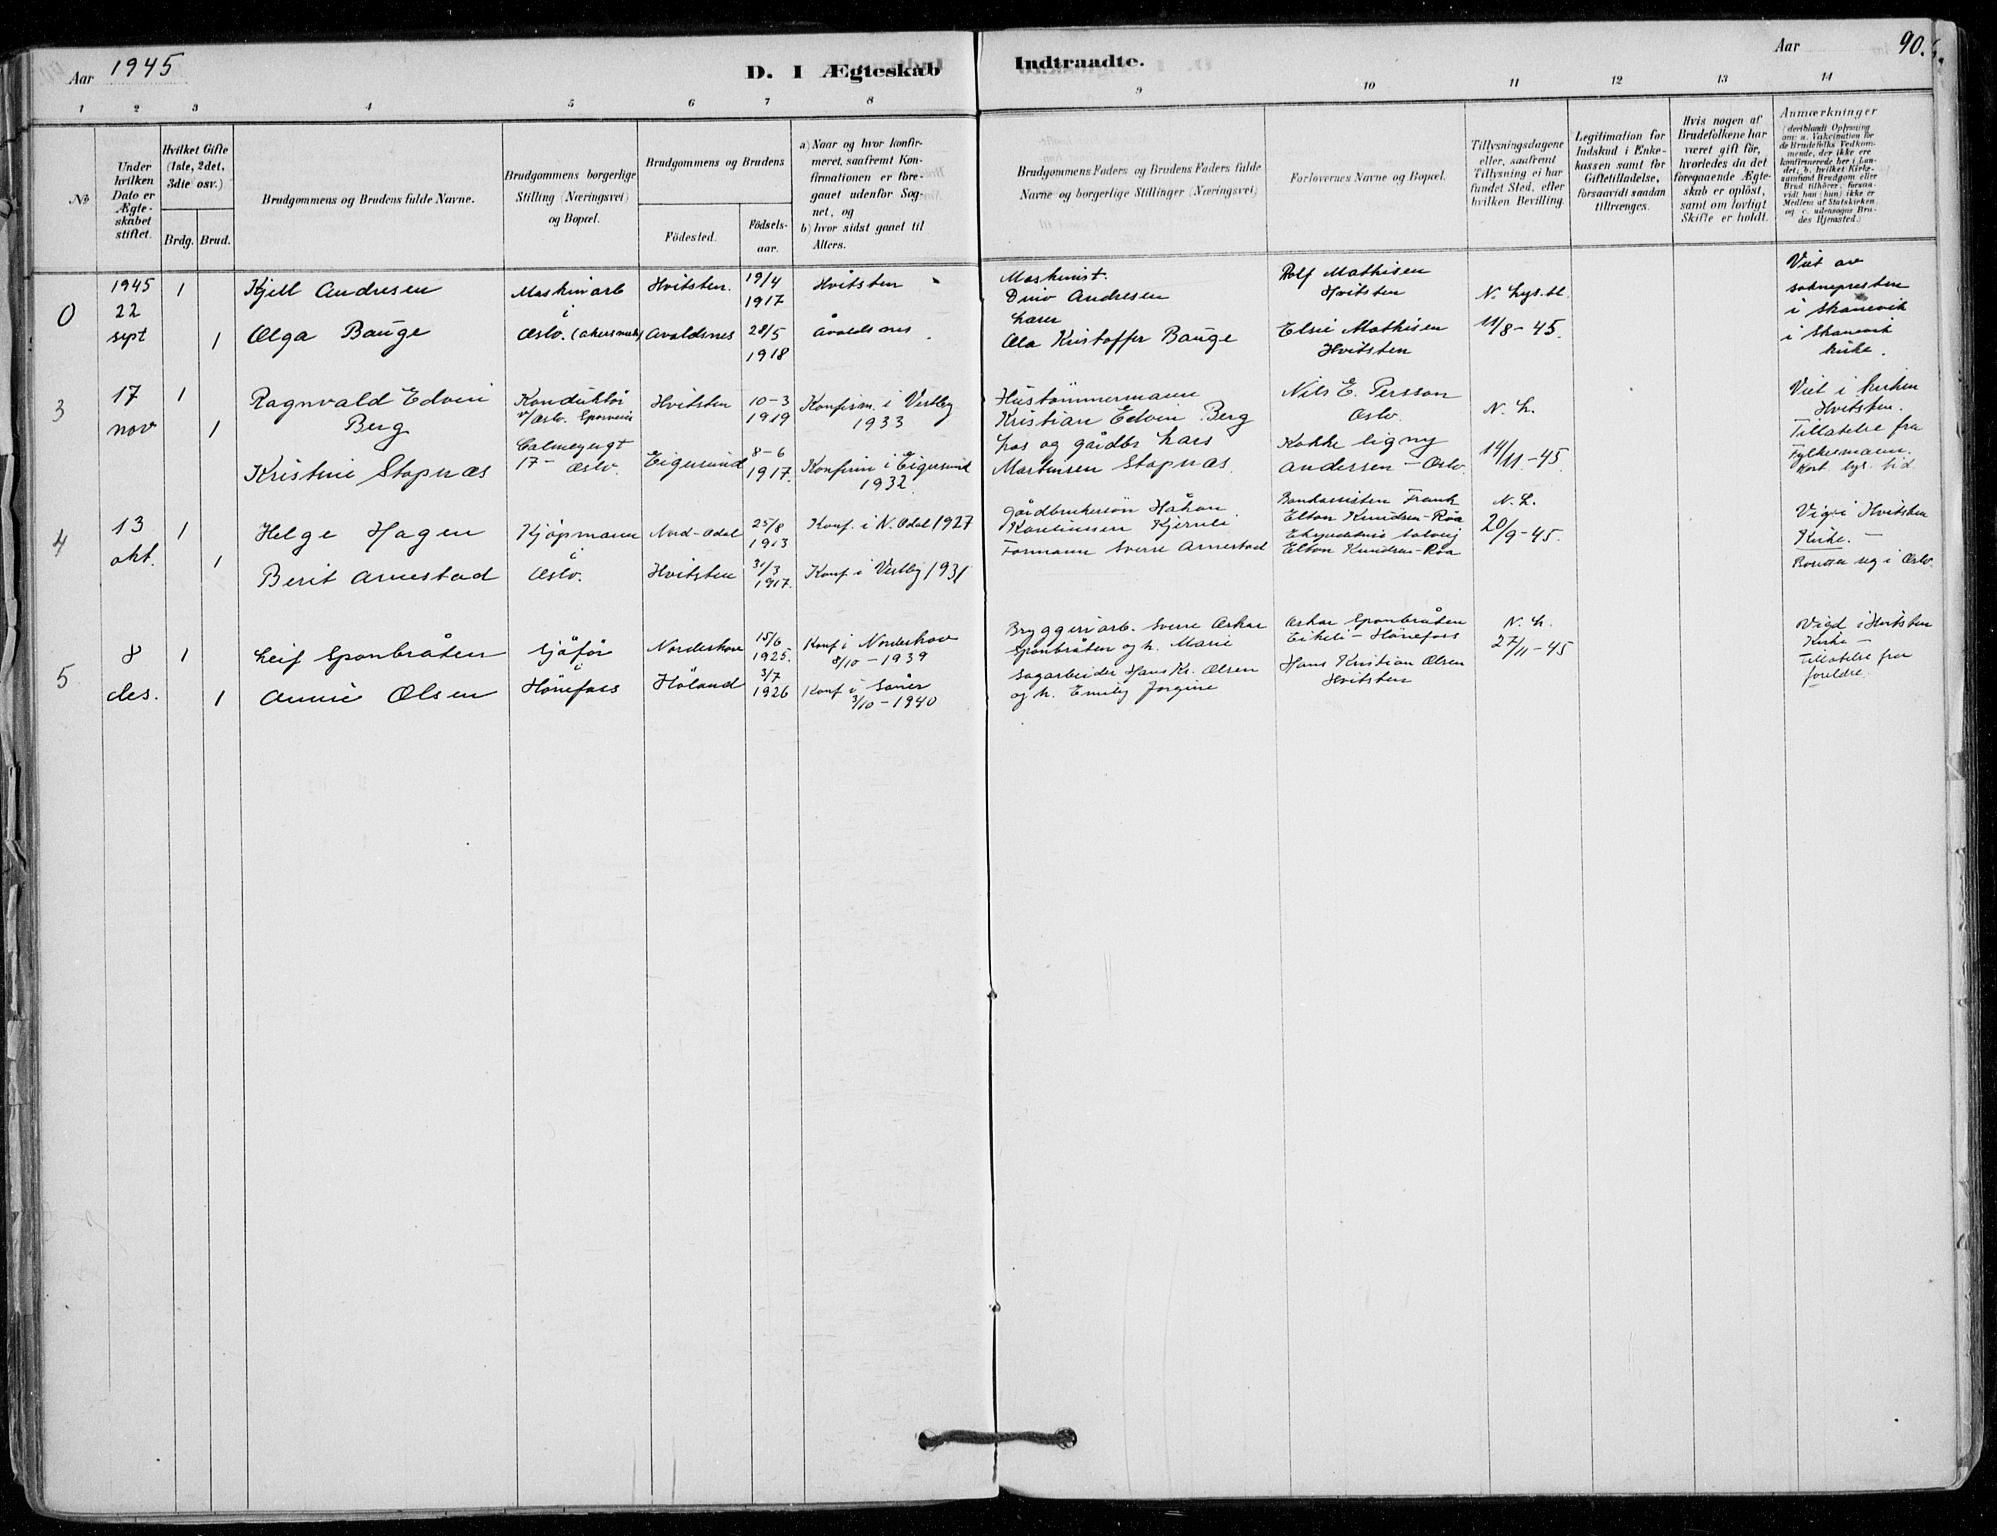 Aar 1945
D. I Ægteskab
Indtraadte.
Aar
90.
1 2 3 4 5 6 7 8 9 10 11 12 13 14
No
Under hvilken Dato er Ægteskabet stiftet.
Hvilket Gifte (1ste, 2det, 3die osv.)
Brdg. Brud.
Brudgommens og Brudens fulde Navne.
Brudgommens borgerlige Stilling (Næringsvei) og Bopæl.
Brudgommens og Brudens
Födested.
Födselsaar.
a) Naar og hvor konfirmeret, saafremt Konfirmationen er foregaaet udenfor Sognet, og
b) hvor sidst gaaet til Alters.
Brudgommens Faders og Brudens Faders fulde Navne og borgerlige Stillinger (Næringsvei)
Forlovernes Navne og Bopæl.
Tillysningsdagene eller, saafremt Tillysning ei har fundet Sted, efter hvilken Bevilling.
Legitimation for Indskud i Enkekassen samt for Giftetilladelse, forsaavidt saadan tiltrænges.
Hvis nogen af Brudefolkene har været gift för, hvorledes da det foregaaende Ægteskab er oplöst, samt om lovligt Skifte er holdt.
Anmærkninger
(deriblandt Oplysning om: a. Vakcination for de Brudefolks Vedkommende, der ikke ere konfirmerede her i Landet; b. hvilket Kirkesamfund Brudgom eller Brud tilhörer, forsaavidt han (hun) ikke er Medlem af Statskirken og c. udensogns Brudes Hjemsted.)
0
1945
22
sept
1
1
Kjell Andresen
Olga Bauge
Maskinarb
i
Oslo. (Akersmek)
Hvitsten.
Avaldsnes
19/4
1917
28/5
1918
Hvitsten
Avaldsnes
Maskinist.
Andresen
Lærer
Ola Kristoffer Bauge
Rolf Mathisen
Hvitsten
Elsie Mathisen
Hvitsten
N. Lys.bl.
11/8-45.
Viet av
soknepresten
i Skanevik
i Skanevik
kirke.
3
17
nov
1
1
Ragnvald Edvin
Berg
Kristine Stapnæs
Konduktör
v/Oslo. Sporveie
Calmeyergt
17- Oslo.
Hvitsten
Eigersund
10-3
1919
8-6
1917.
Konfirm. i Vestby
1933
Konfirm i Eigersund
1932
Hustömmermann
Kristian Edvin Berg
Los og gårdbr Lars
Martinsen Stapnæs.
Nils E. Persson
Oslo.
Kokke
Andersen - Oslo.
N. L.
14/11.-45.
Viet i kirken
Hvitsten.
Tillatelse fra
Fylkesmann.
Kort lys. tid.
4
13
okt.
1
1
Helge Hagen
Berit Arnestad
Kjöpmann
i
Oslo.
Nord-Odal
Hvitsten
25/8
1913
31/3
1917.
Konf. i N. Odal 1927
Konf i Vestby 1931
Gårdbruker Håkon
Formann Sverre Arnestad
Elton Knudsen-Röa
Solveig
Elton Knudsen-Röa
N. L.
20/9-45.
Vigd i Hvitsten
Kirke. -
Bosetter seg i Oslo.
5
8
des.
1
1
Leif Sponbråten
Annie Olsen
Sjåför
i
Hönefoss
Norderhov
Höland
15/6
1925.
3/7
1926
Konf i Norderhov
8/10-1939
Konf i Såner
3/10-1940
Bryggeriarb. Sverre Oskar
Sponbråten og h. Marie
Sagarbeider Hans Kr. Olsen
og h. Emily Jorgine
Oskar Sponbråten
Eikeli - Hönefoss
Hans Kristian Olsen
Hvitsten
N. L.
27/11-45
Vigd i Hvitsten
Kirke -
Tillatelse fra
foreldre.